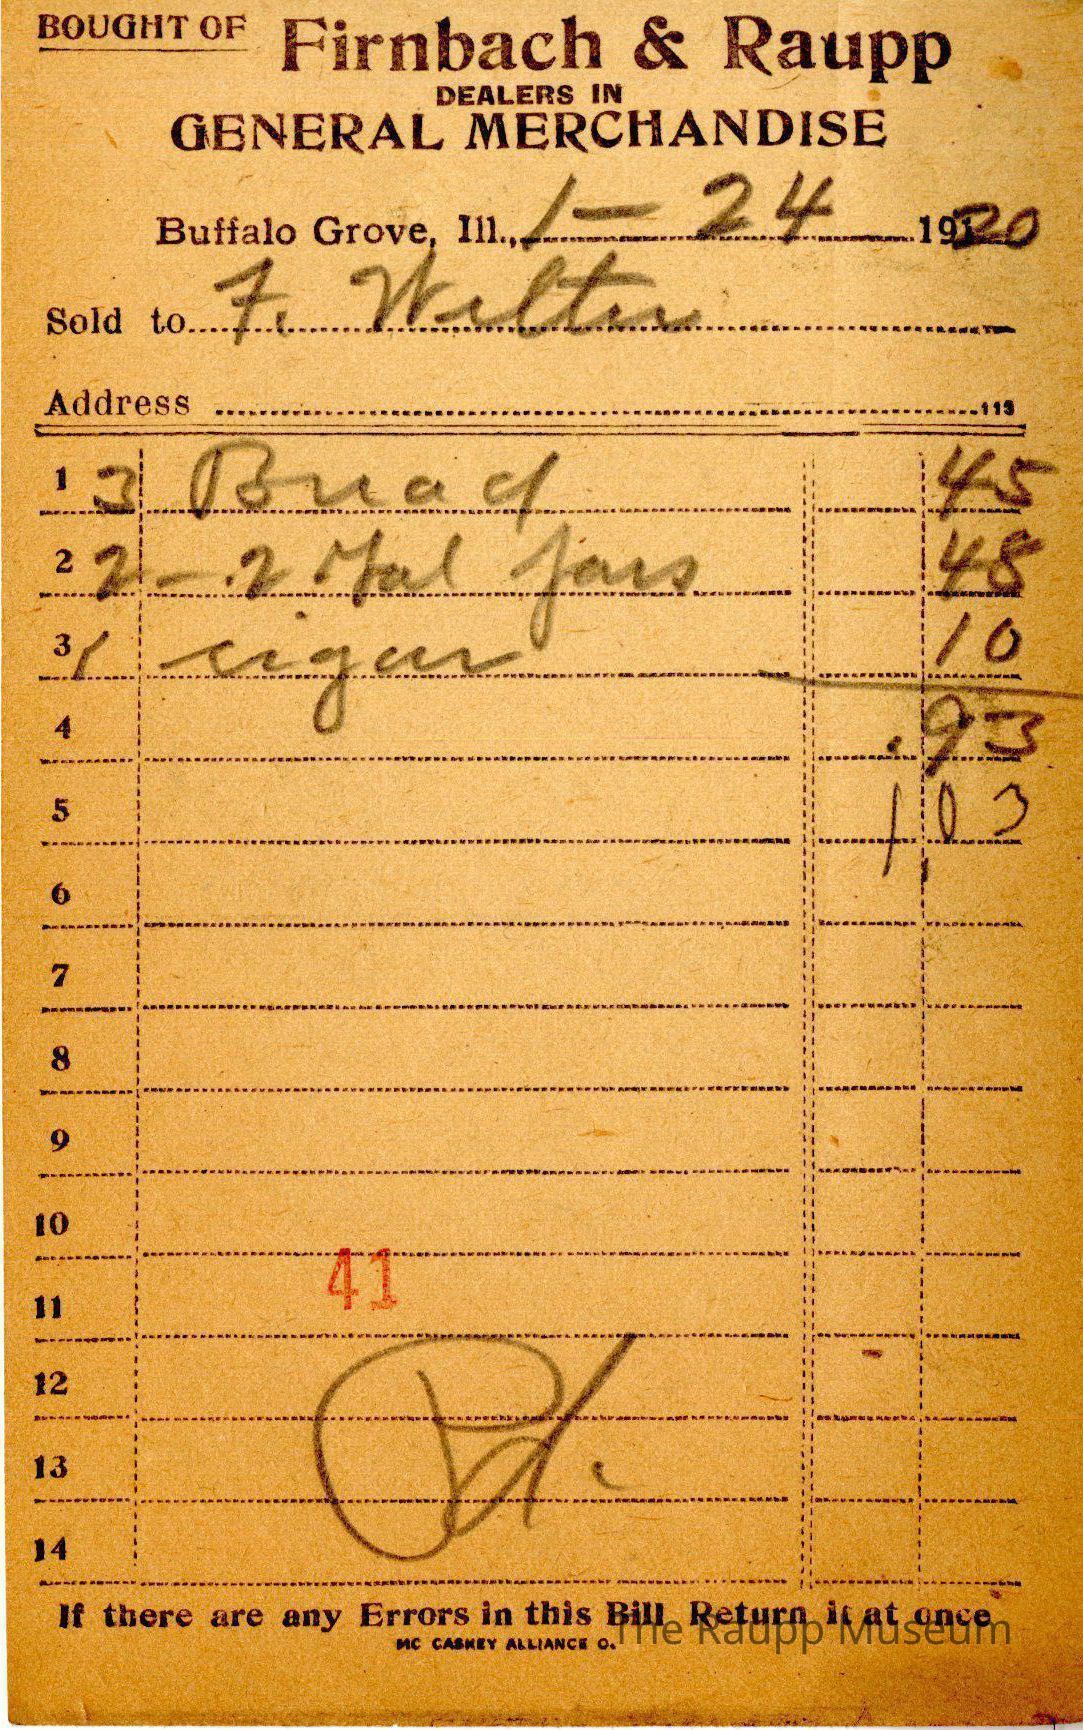 BOUGHT OF Firnbach & Raupp
DEALERS IN
GENERAL MERCHANDISE
Buffalo Grove, Ill., 1 - 24 1920
Sold to F. Welter
Address 113
1 3 Bread 45
2 2 - 2 Gal Jars 48
3 1 cigar 10
4 .93
5 1,03
6
7
8
9
10
41
11
12
Pd.
13
14
If there are any Errors in this Bill Return it at once
MC CASKEY ALLIANCE O.
The Raupp Museum